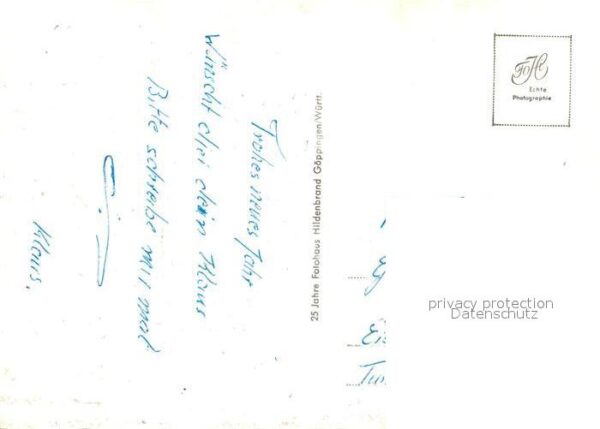 Frohes neues Jahr
Wünscht dir dein Klaus
Bitte schreibe mir mal
Klaus.
25 Jahre Fotohaus Hildenbrand Göppingen/Württ.
FoHi
Echte
Photographie
privacy protection
Datenschutz